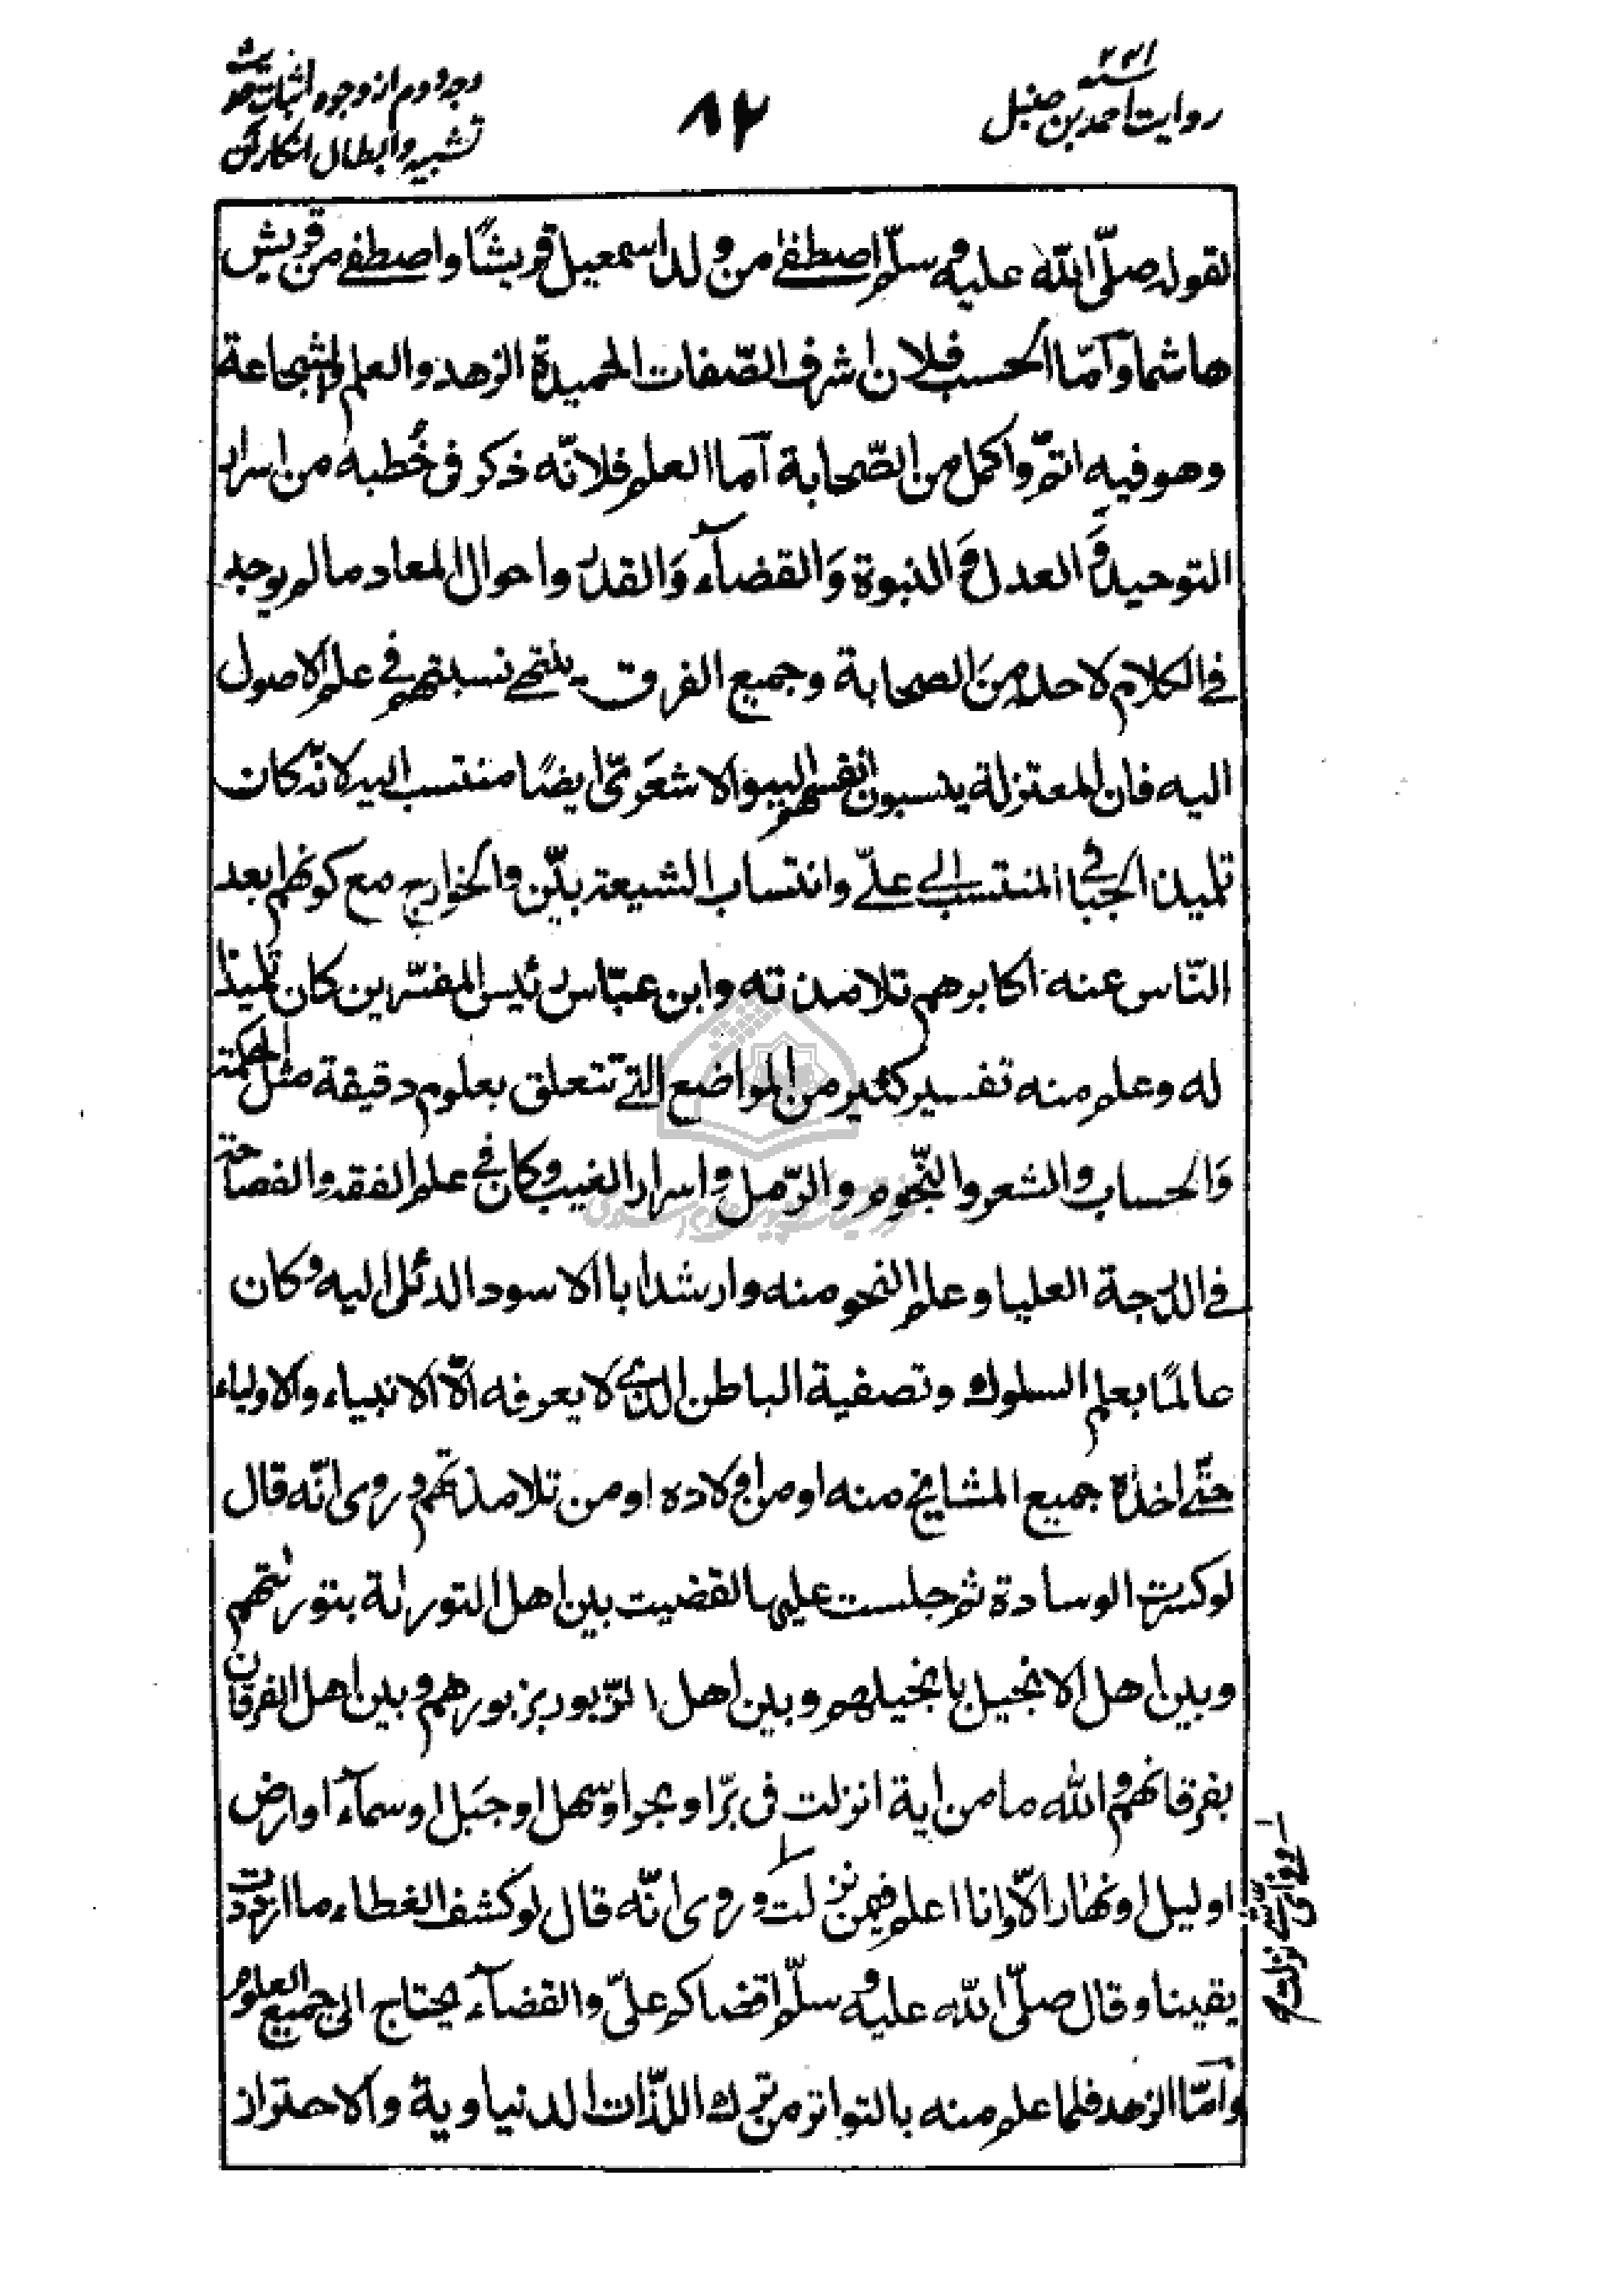 روایت احمد بن حنبل
سنه ۲۴۱
۸۲
وجه دوم از وجوه اثبات حدیث
تشبیه و ابطال انکار آن
لقوله صلّى الله عليه وسلّم اصطفى من ولد اسمعيل قريشًا واصطفى من قريش
هاشما وآمّا الحسب فلان اشرف الصّفات الحميدة الزهد والعلم والشجاعة
وهو فيه اتمّ واكمل من الصّحابة آما العلم فلانّه ذكر فى خُطبه من اسرار
التوحيد وَالعدل وَالنبوة وَالقضآء وَالقدر واحوال المعاد مالم يوجد
فے الكلام لاحد منَ الصحابة وجميع الفرق ينتهے نسبتهم فے علم الاصول
اليه فان المعتزلة ينسبون انفسهم اليه والاشعَرىّ ايضًا منتسب اليه لانّه كان
تلميذ الجبّائى المنتسب الے علىّ وانتساب الشيعة بيّن والخوارج مع كونهم ابعد
النّاس عنه اكابرهم تلامذته وابن عبّاس رئيس المفسّرين كان تلميذا
له وعلم منه تفسير كثير من المواضع التے تتعلق بعلوم دقيقة مثل الحكمة
وَالحساب والشعر والنّجوم والرّمل واسرار الغيب وكان فے علم الفقه والفصاحة
فے الدّرجة العليا وعلم النحو منه وارشد ابا الاسود الدئلى اليه وكان
عالمًا بعلم السلوك وتصفية الباطن الذے لا يعرفه الّا الانبياء والاولياء
حتّے اخذه جميع المشايخ منه او من اولاده او من تلامذتهم وروى انّه قال
لو كسرت الوسادة ثم جلست عليها لقضيت بين اهل التورٰىة بتورٰىتهم
وبين اهل الانجيل بانجيلهم وبين اهل الزّبور بزبورهم وبين اهل الفرقان
بفرقانهم والله ما من اية انزلت فى برّ او بحر او سهل او جبَل او سماۤء او ارض
او ليل او نهار الّا وانا اعلم فيمن نزلت وروى انّه قال لو كشف الغطاء ما ازددت
يقينا وقال صلّى الله عليه وسلّم اقضاكم علىّ والقضآء يحتاج الى جميع العلوم
وآمّا الزهد فلما علم منه بالتواتر من ترك اللذّات الدنياوية والاحتراز
وفى اىّ شے نزلت